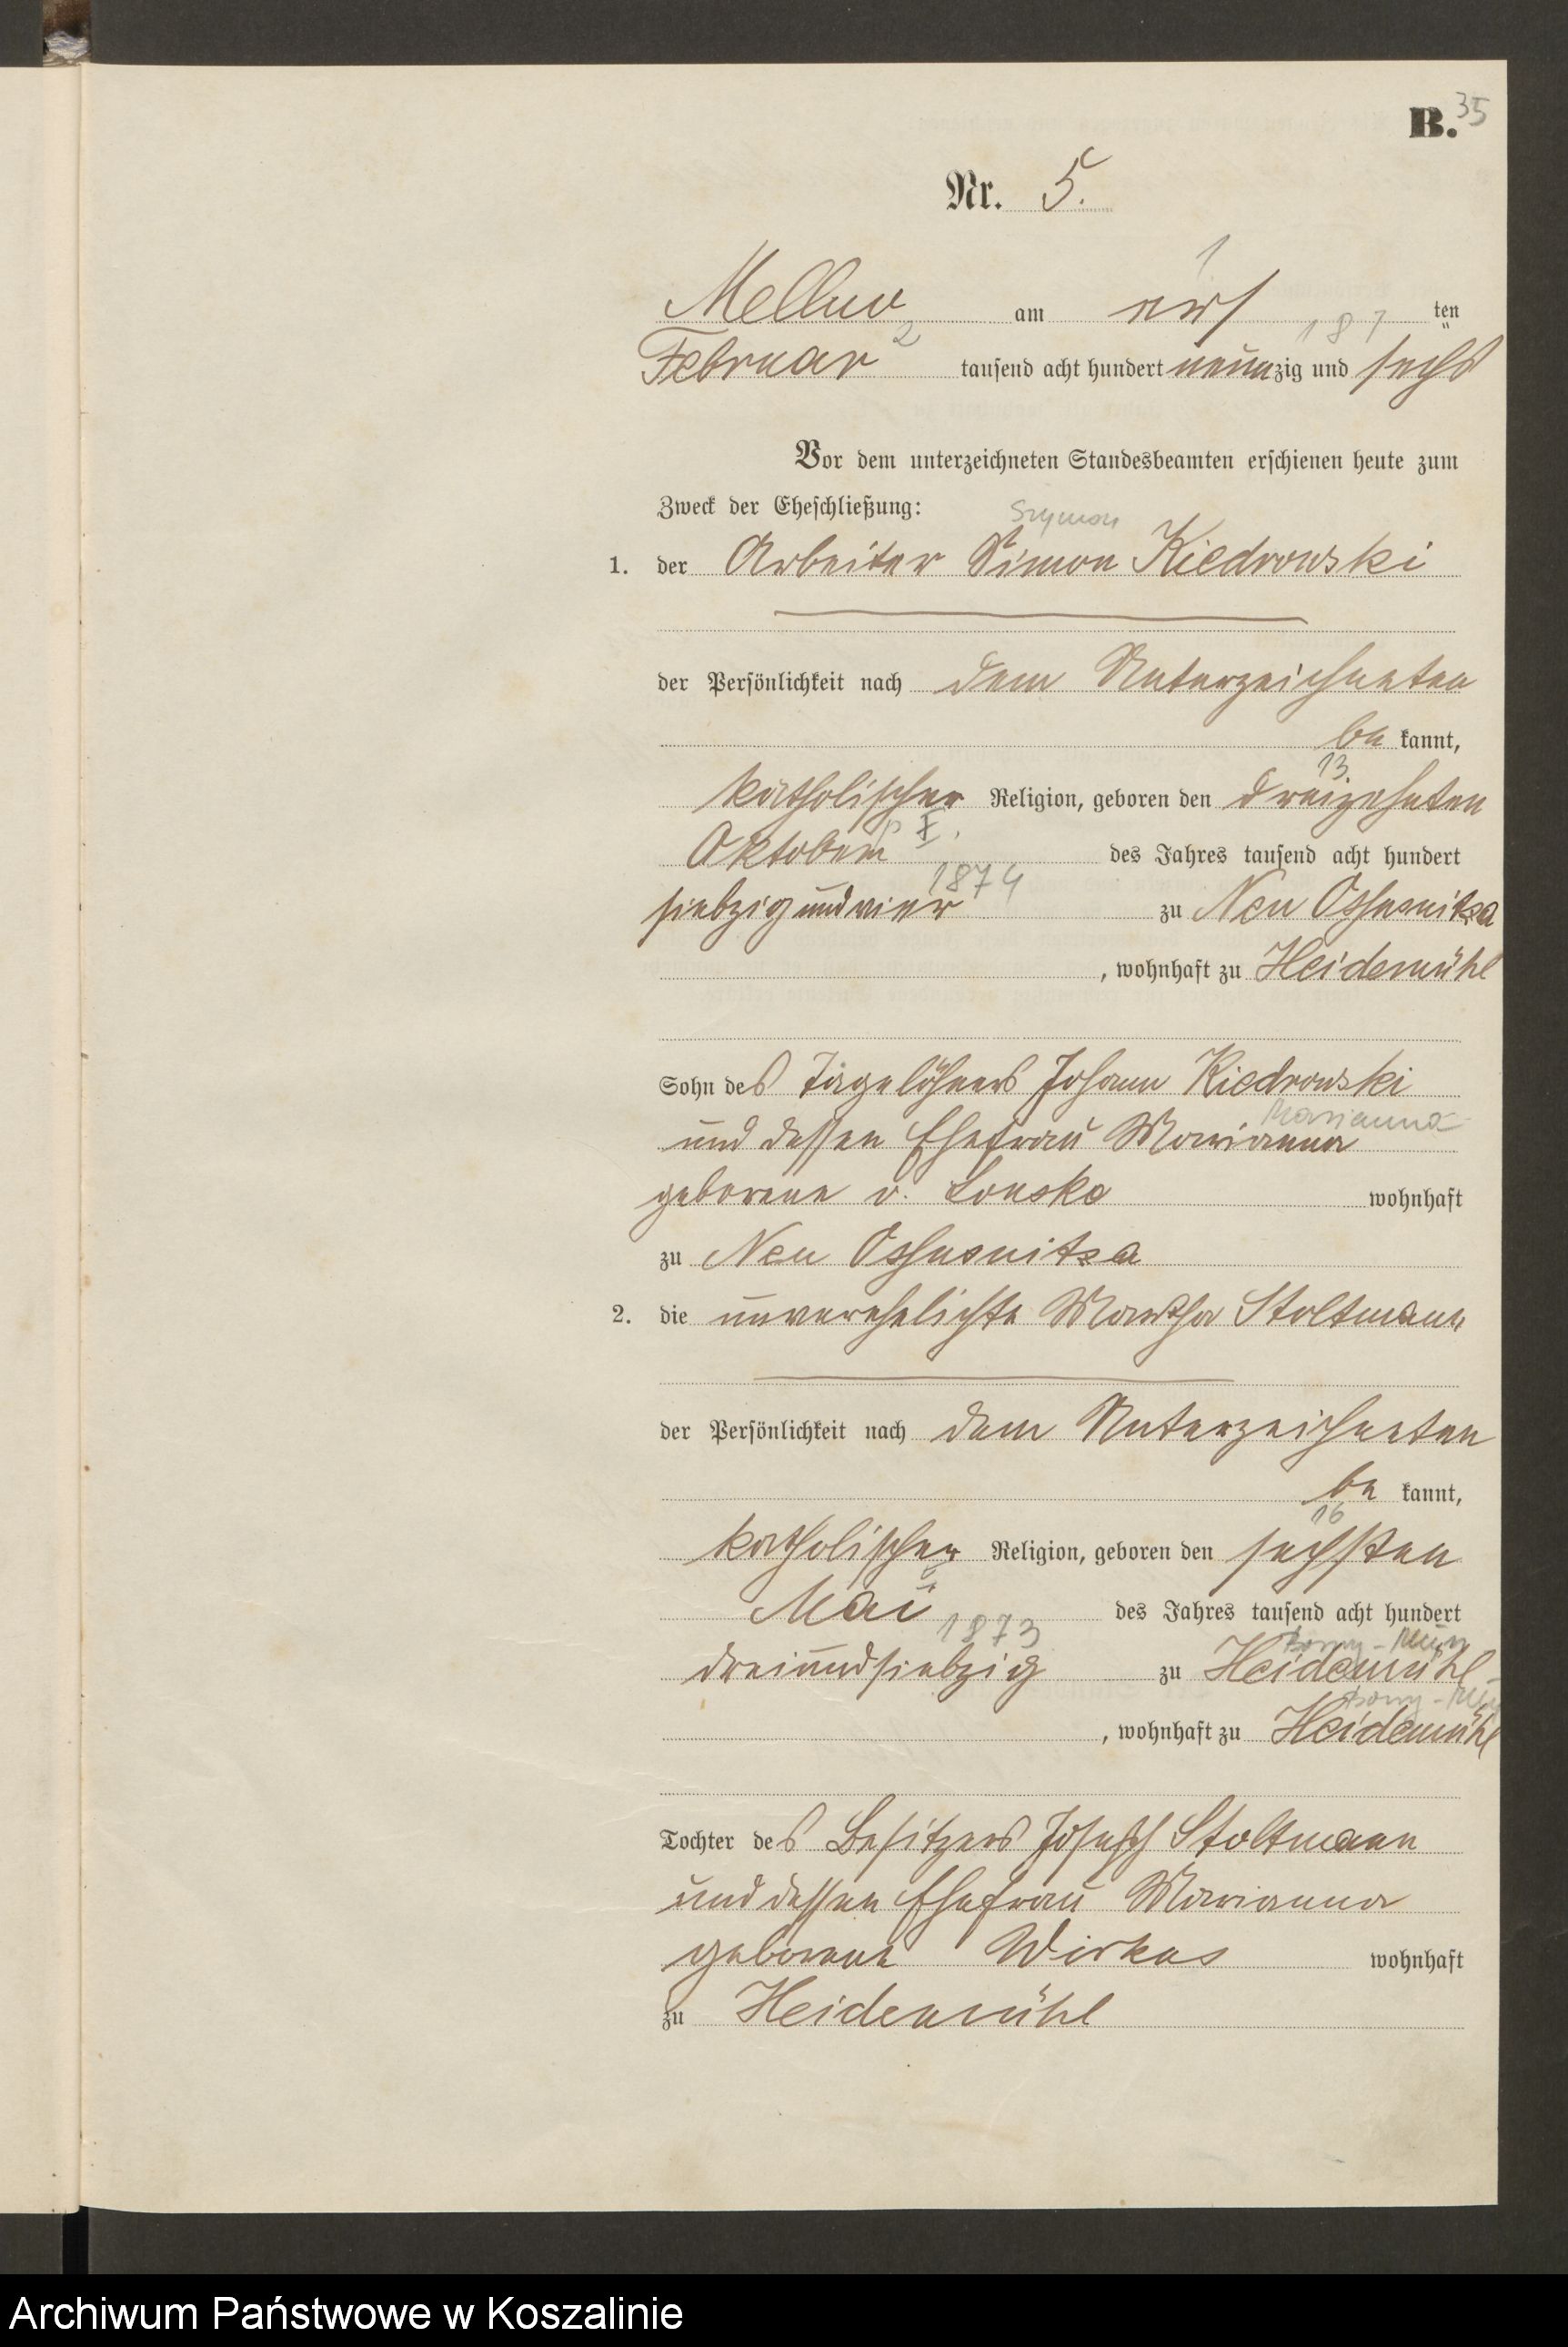 B. 35
Nr. 5.
1
Mellno am erst ten
2 187
Februar tausend acht hundert neunzig und sechs
Vor dem unterzeichneten Standesbeamten erschienen heute zum
Zweck der Eheschließung:
Szymon
1. der Arbeiter Simon Kiedrowski
der Persönlichkeit nach dem Unterzeichneten
be kannt,
13
katholischer Religion, geboren den dreizehnten
X.
Oktober des Jahres tausend acht hundert
1874
siebzig und vier zu Neu
, wohnhaft zu Heidemühl
Sohn des Tagelöhners Johann Kiedrowski
Marianna
und dessen Ehefrau Marianna
geborene v. Lonske wohnhaft
zu Neu
2. die unverehelichte Martha Stoltmann
der Persönlichkeit nach dem Unterzeichneten
be kannt,
16
katholischer Religion, geboren den sechsten
Mai des Jahres tausend acht hundert
1873
dreiundsiebzig zu Heidemühl
, wohnhaft zu Heidemühl
Tochter des Besitzers Joseph Stoltmann
und dessen Ehefrau Marianna
geborene Wirkus wohnhaft
zu Heidemühl
Archiwum Państwowe w Koszalinie